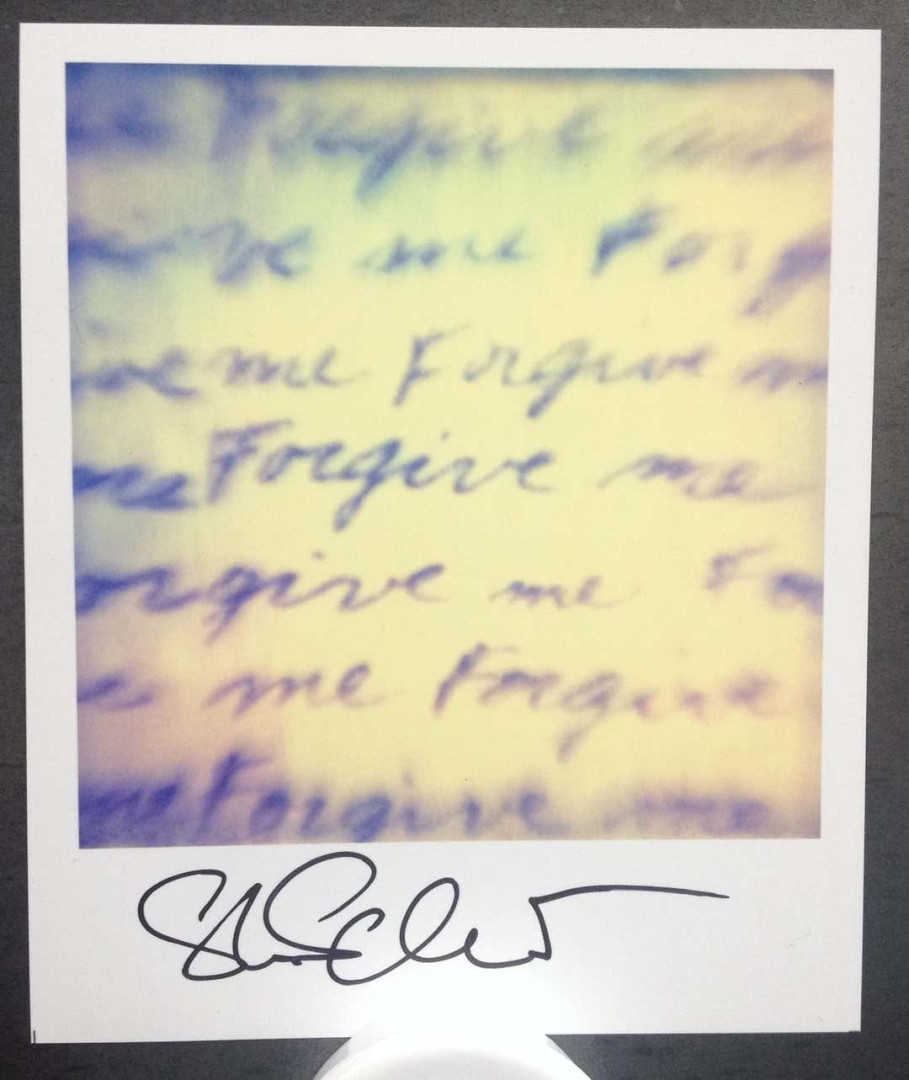 Forgive
ve me Forg
ive me Forgive m
me Forgive me
orgive me Fo
e me Forgive
me Forgive me